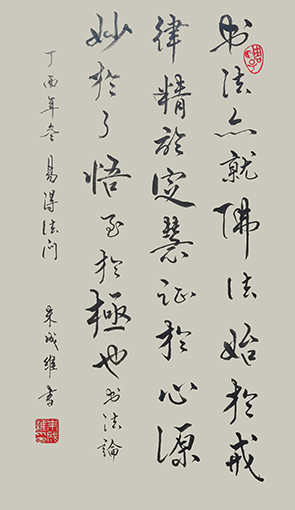 书法亦就佛法始於戒
律精於定慧证於心源
妙於了悟至於極也书法論
丁酉年冬易得法门
朱成维书